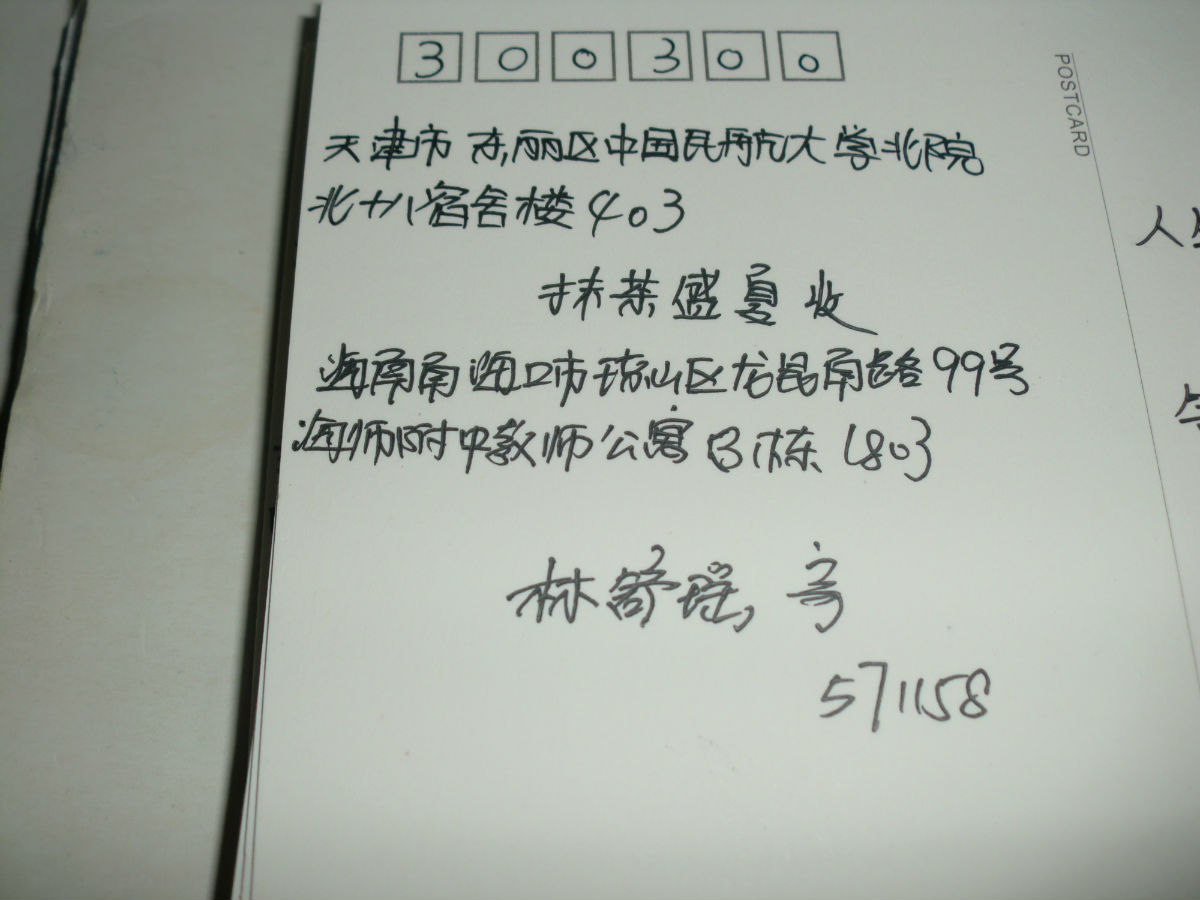 300300
POSTCARD
天津市东丽区中国民航大学北院
北十八宿舍楼403
扶茶盛夏 收
海南南海口市琼山区龙昆南路99号
海师附中教师公寓B栋1803
林舒瑶，寄
571158
人